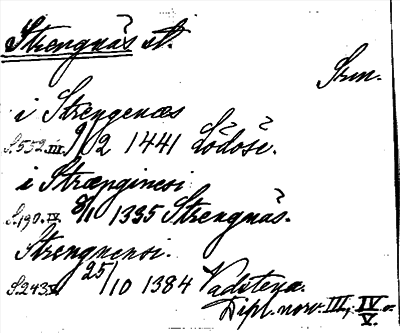 Strengnäs st.
Srm.
i Strengenæs
S.552.III. 9/2 1441 Lödöse.
i Strænginesi
S.190.IV. 8/1 1335 Strengnäs.
Strengnensi.
S.243.V. 25/10 1384 Vadstena.
Dipl. norv. III, IV o. V.